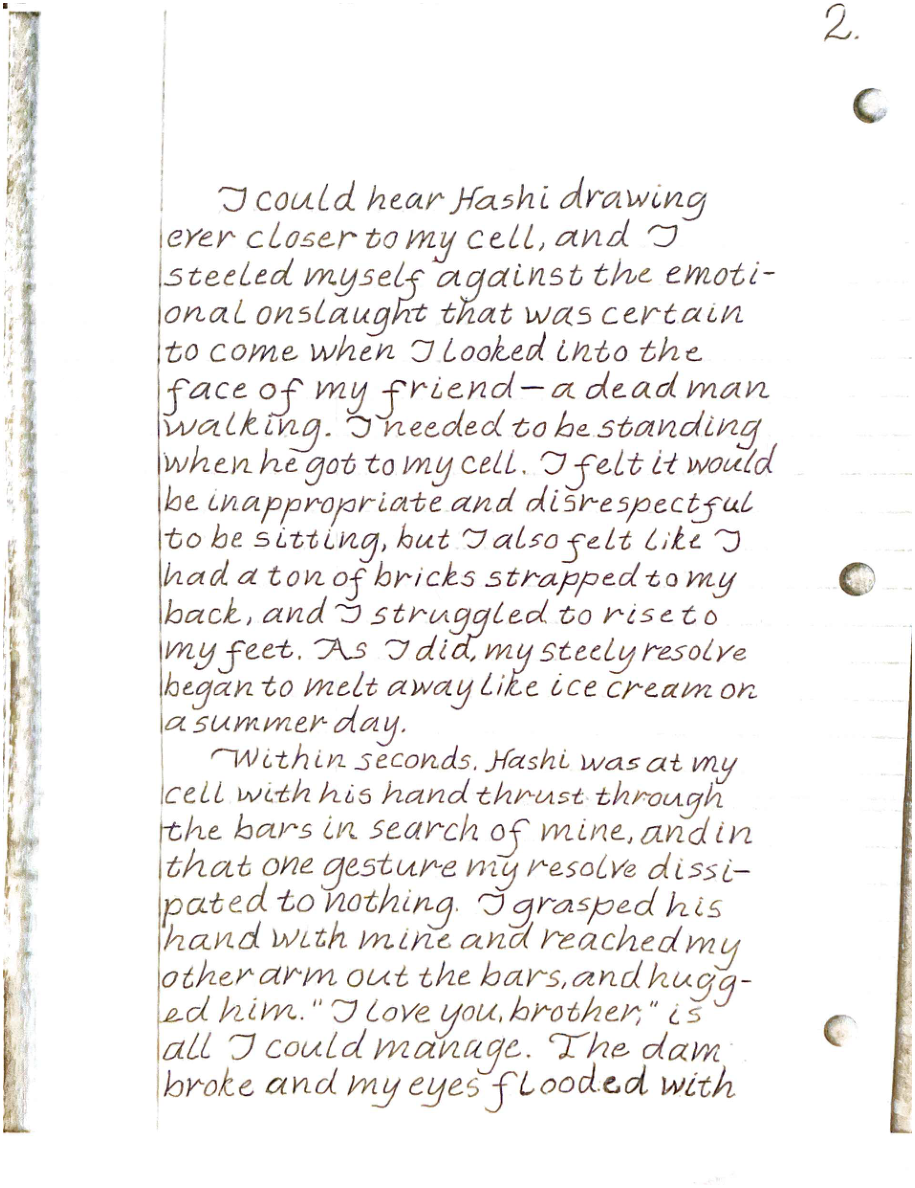 2.
I could hear Hashi drawing
ever closer to my cell, and I
steeled myself against the emoti-
onal onslaught that was certain
to come when I looked into the
face of my friend—a dead man
walking. I needed to be standing
when he got to my cell. I felt it would
be inappropriate and disrespectful
to be sitting, but I also felt like I
had a ton of bricks strapped to my
back, and I struggled to rise to
my feet. As I did, my steely resolve
began to melt away like ice cream on
a summer day.
Within seconds, Hashi was at my
cell with his hand thrust through
the bars in search of mine, and in
that one gesture my resolve dissi-
pated to nothing. I grasped his
hand with mine and reached my
other arm out the bars, and hugg-
ed him. "I love you, brother," is
all I could manage. The dam
broke and my eyes flooded with